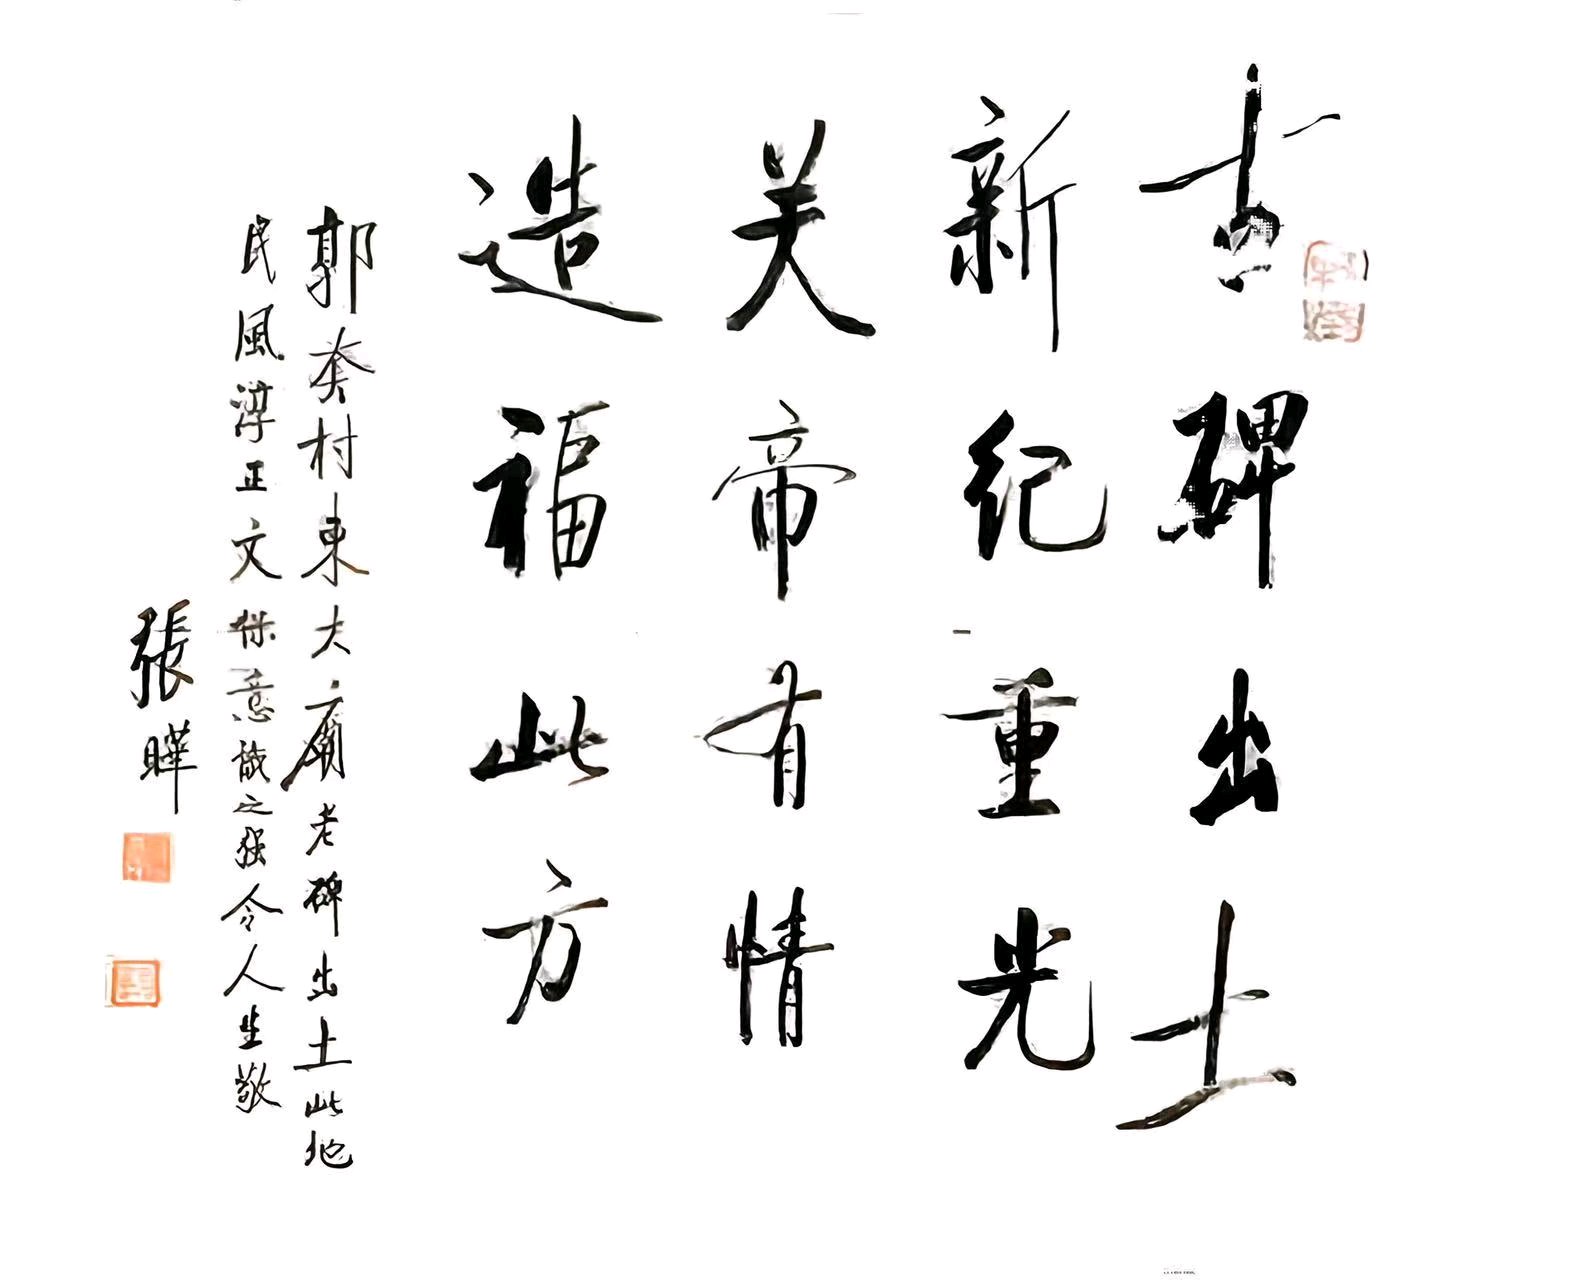 古碑出土
新纪重光
关帝有情
造福此方
郭村東大廟老碑出土此地
民風淳正文保意識之强令人生敬
張曄